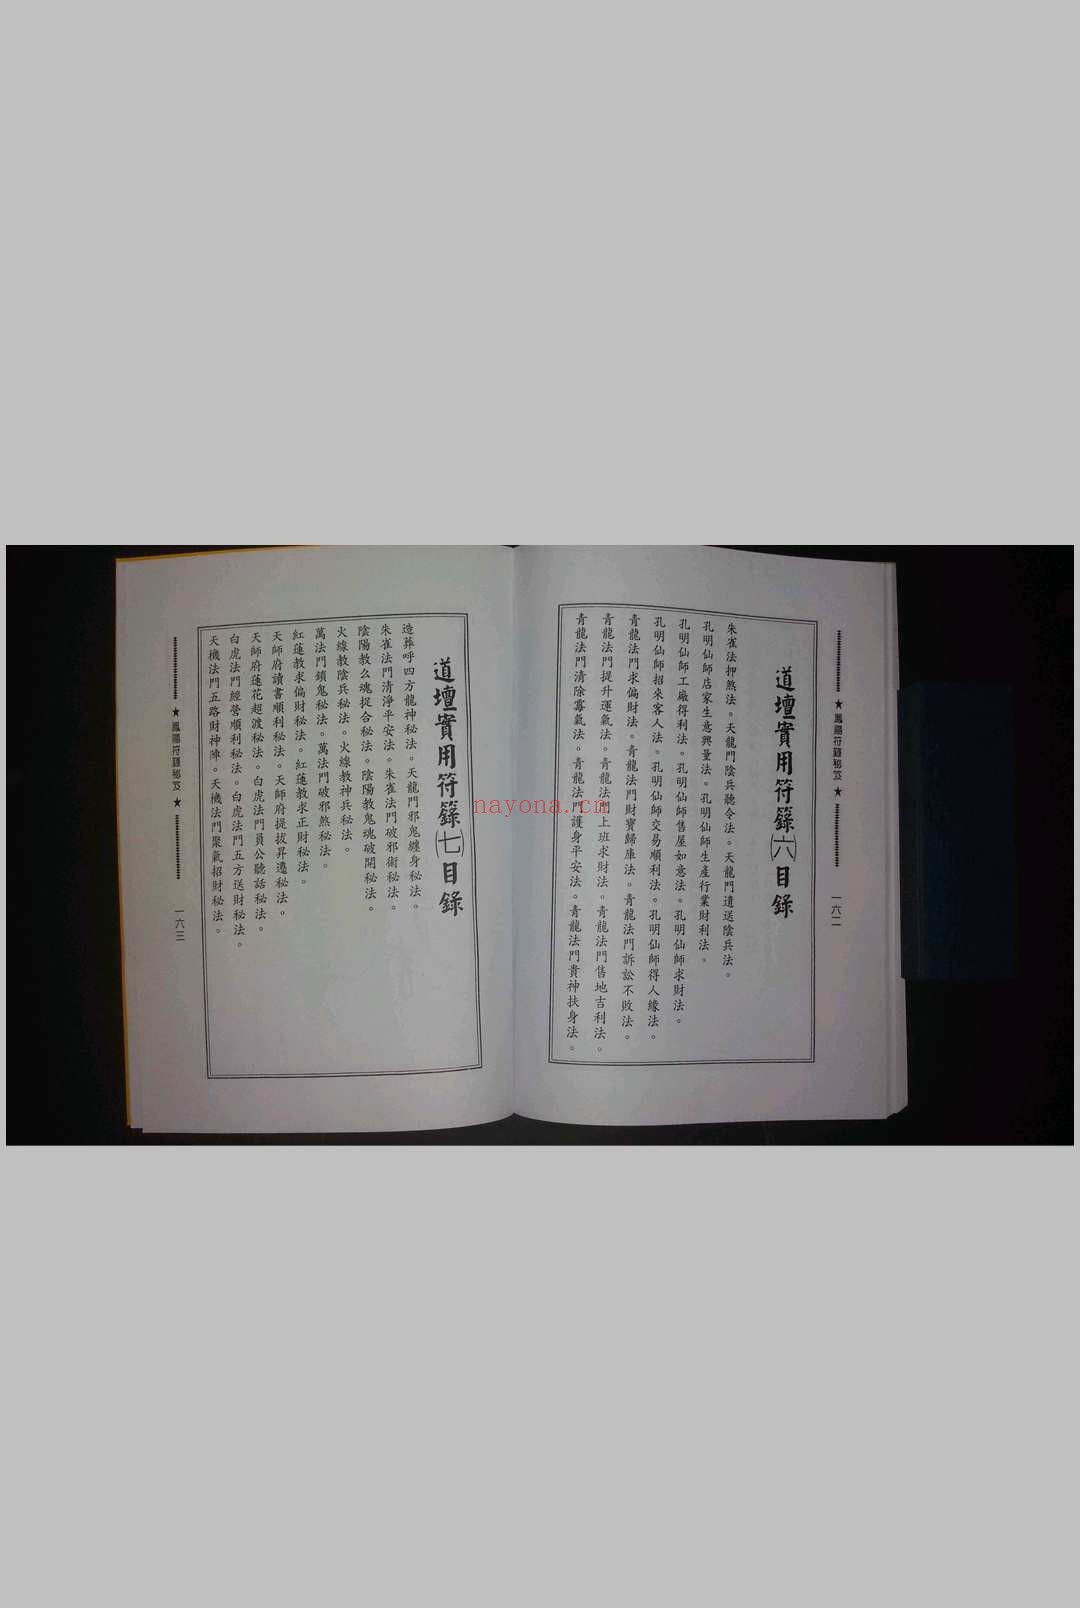 ★鳳陽符籙秘笈★
一六二
道壇實用符籙(六)目錄
朱雀法押煞法。天龍門陰兵聽令法。天龍門遣送陰兵法。
孔明仙師店家生意興量法。孔明仙師生產行業財利法。
孔明仙師工廠得利法。孔明仙師售屋如意法。孔明仙師求財法。
孔明仙師招來客人法。孔明仙師交易順利法。孔明仙師得人緣法。
青龍法門求偏財法。青龍法門財寶歸庫法。青龍法門訴訟不敗法。
青龍法門提升運氣法。青龍法門上班求財法。青龍法門售地吉利法。
青龍法門清除霉氣法。青龍法門護身平安法。青龍法門貴神扶身法。
道壇實用符籙(七)目錄
造葬呼四方龍神秘法。天龍門邪鬼纏身秘法。
朱雀法門清淨平安法。朱雀法門破邪術秘法。
陰陽教么魂捉合秘法。陰陽教鬼魂破開秘法。
火線教陰兵秘法。火線教神兵秘法。
萬法門鎖鬼秘法。萬法門破邪煞秘法。
紅蓮教求偏財秘法。紅蓮教求正財秘法。
天師府讀書順利秘法。天師府提拔昇遷秘法。
天師府蓮花超渡秘法。白虎法門員公聽話秘法。
白虎法門經營順利秘法。白虎法門五方送財秘法。
天機法門五路財神陣。天機法門聚氣招財秘法。
★鳳陽符籙秘笈★
一六三
nayona.cn